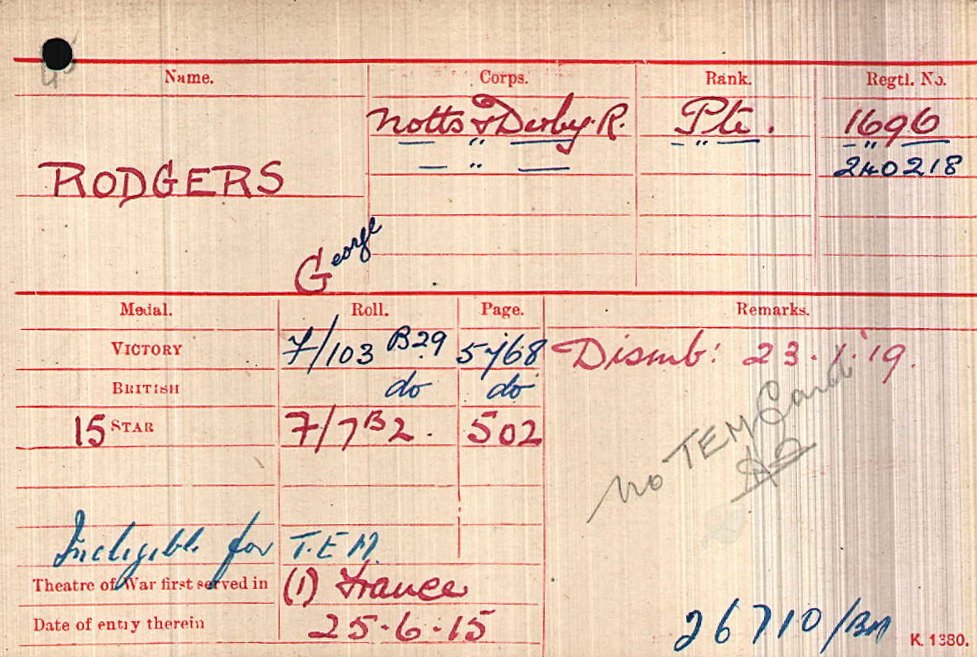 45
Name. Corps. Rank. Regtl. No.
Notts & Derby. R. Pte. 1696
— " — — " — — " —
RODGERS — " — 240218
George
Medal. Roll. Page. Remarks.
VICTORY 7/103 B29 5768 Disemb: 23.1.'19.
BRITISH do do
15 STAR 7/7B2. 502
No TEM Card
Ineligible for T.E.M.
Theatre of War first served in (1) France
Date of entry therein 25-6-15
26710/BM
K. 1380.